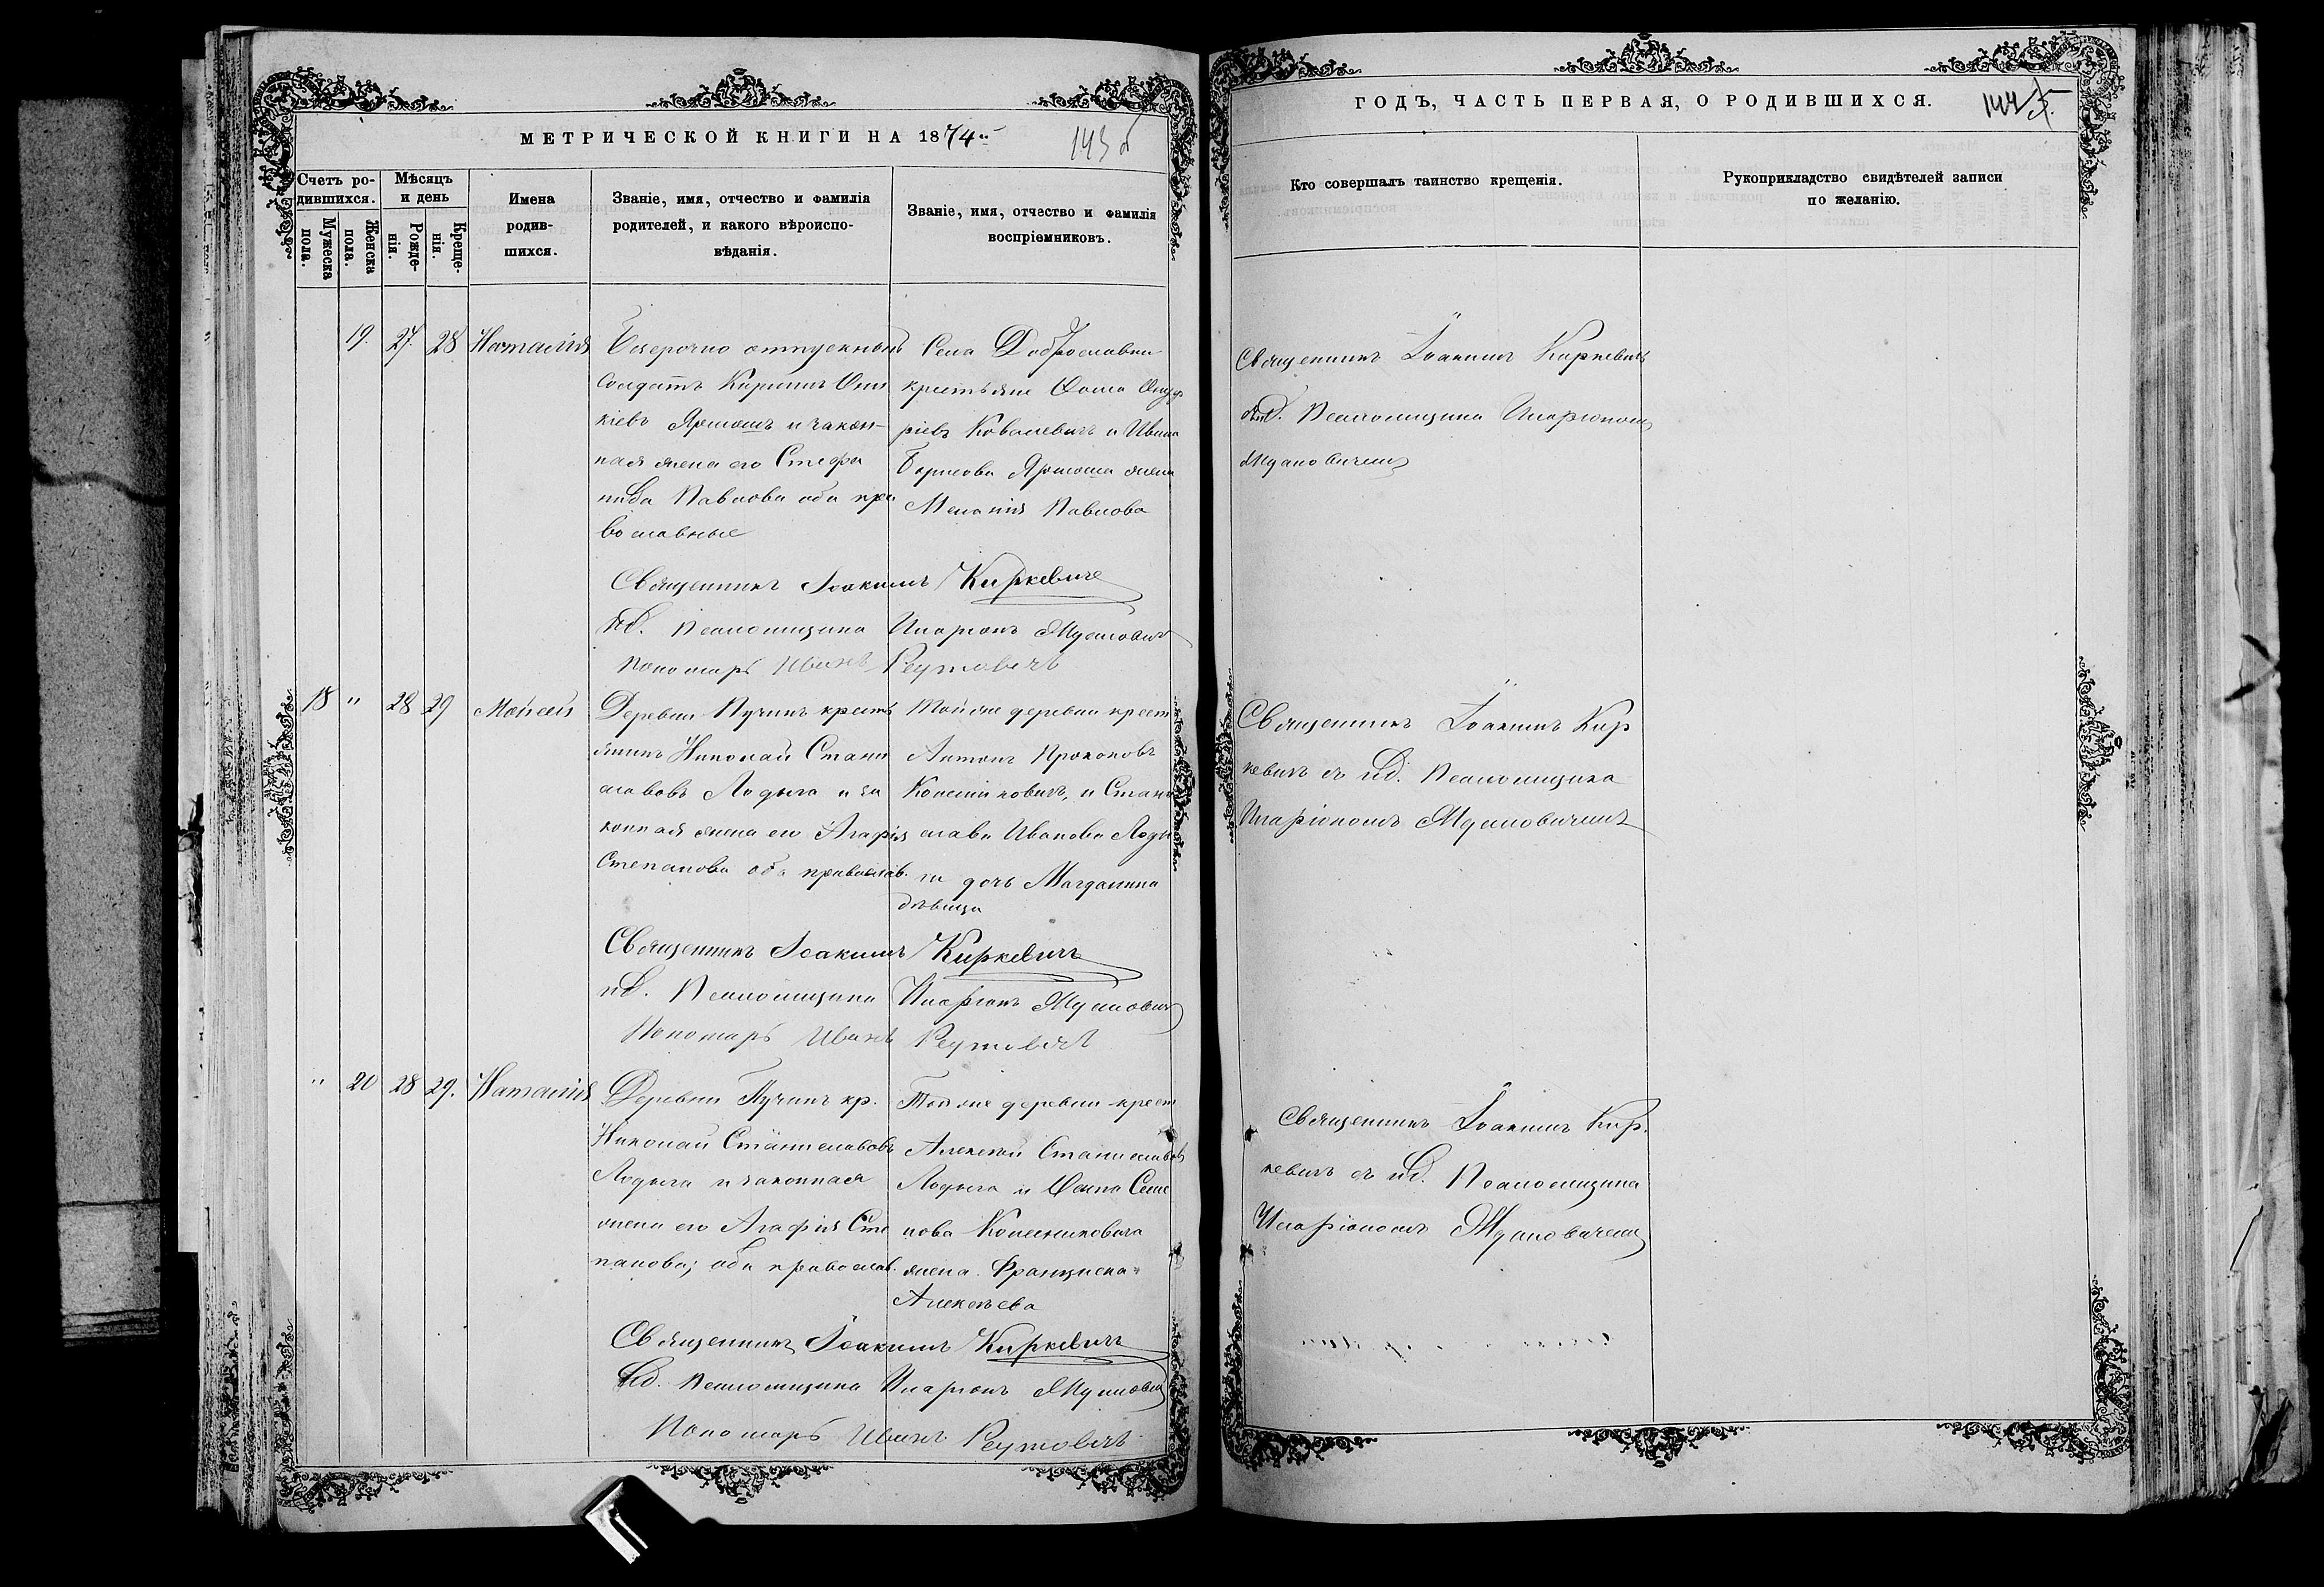 МЕТРИЧЕСКОЙ КНИГИ НА 1874
143 об
Счетъ ро-
дившихся.
Мужеска
пола.
Женска
пола.
Мѣсяцъ
и день
Рожде-
нія.
Креще-
нія.
Имена
родив-
шихся.
Званіе, имя, отчество и фамилія
родителей, и какого вѣроиспо-
вѣданія.
Званіе, имя, отчество и фамилія
воспріемниковъ.
19. 27. 28 Наталія
Безсрочно отпускный
Солдатъ Кирилъ
кіевъ Ярмошъ и закон-
ная жена его Стефа
нида Павлова оба пра
вославные
Села Доброславки
крестьяне Ѳома Онуф
ріевъ Ковалевичъ и Ивана
Борисова Ярмоша жена
Меланія Павлова
Священникъ Іоакимъ Киркевичъ
ид. Псаломщика Иларіонъ
Пономарь Иванъ Реутовичъ
18 " 28 29 Моисей
Деревни Пучинъ кресть
янинъ Николай Стани
славовъ Лодыга и за
конная жена его Агафія
Степанова оба православ.
Той же деревни крест
Антонъ Прокоповъ
и Стани
слава Иванова Лоды
га дочь Магдалина
дѣвица
Священникъ Іоакимъ Киркевичъ
ид. Псаломщика Иларіонъ
Пономарь Иванъ Реутовичъ
" 20 28 29. Наталія
Деревни Пучинъ кр.
Николай Станиславовъ
Лодыга и законная
жена его Агафія Сте
панова; оба православ.
Той же деревни крест
Алексѣй Станиславовъ
Лодыга и Семе
нова Колесниковича
жена Франциска
Алексѣева
Священникъ Іоакимъ Киркевичъ
ид. Псаломщика Иларіонъ
Пономарь Иванъ Реутовичъ
ГОДЪ, ЧАСТЬ ПЕРВАЯ, О РОДИВШИХСЯ.
144
Кто совершалъ таинство крещенія.
Рукоприкладство свидѣтелей записи
по желанію.
Священникъ Іоакимъ Киркевичъ
Псаломщика Иларіономъ
Священникъ Іоакимъ Кир
кевичъ съ ид. Псаломщика
Иларіономъ
Священникъ Іоакимъ Кир.
кевичъ съ ид. Псаломщика
Иларіономъ